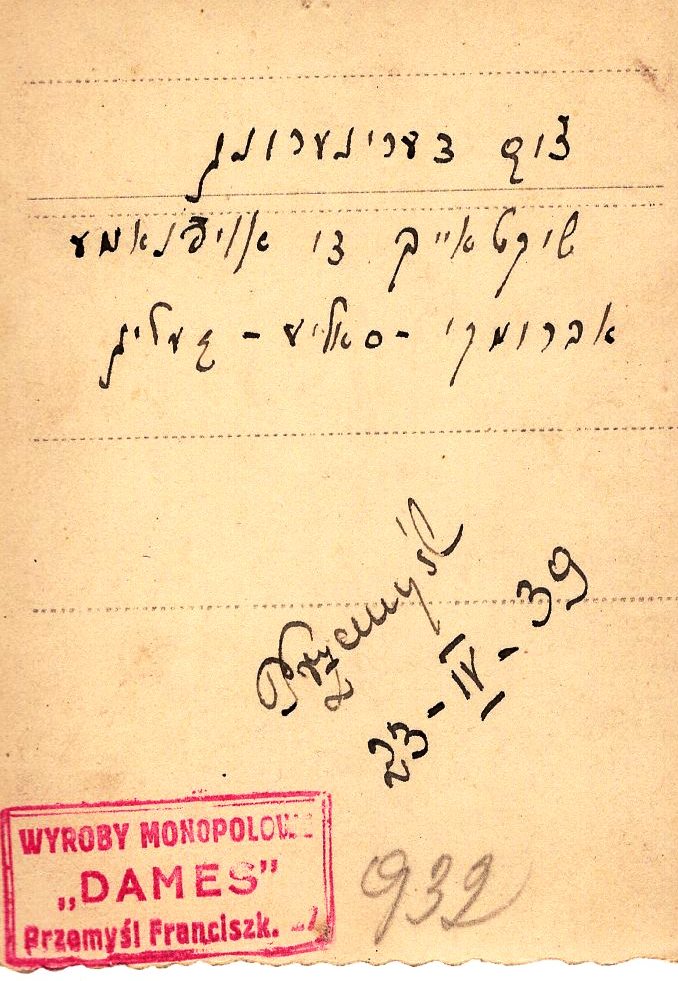 צום דערינערונג
שיקט אייך די אויפנאמע
אברומקי - סאליע -
Przemyśl
23-IV-39
WYROBY MONOPOLOWE
„DAMES”
Przemyśl Franciszk.
932